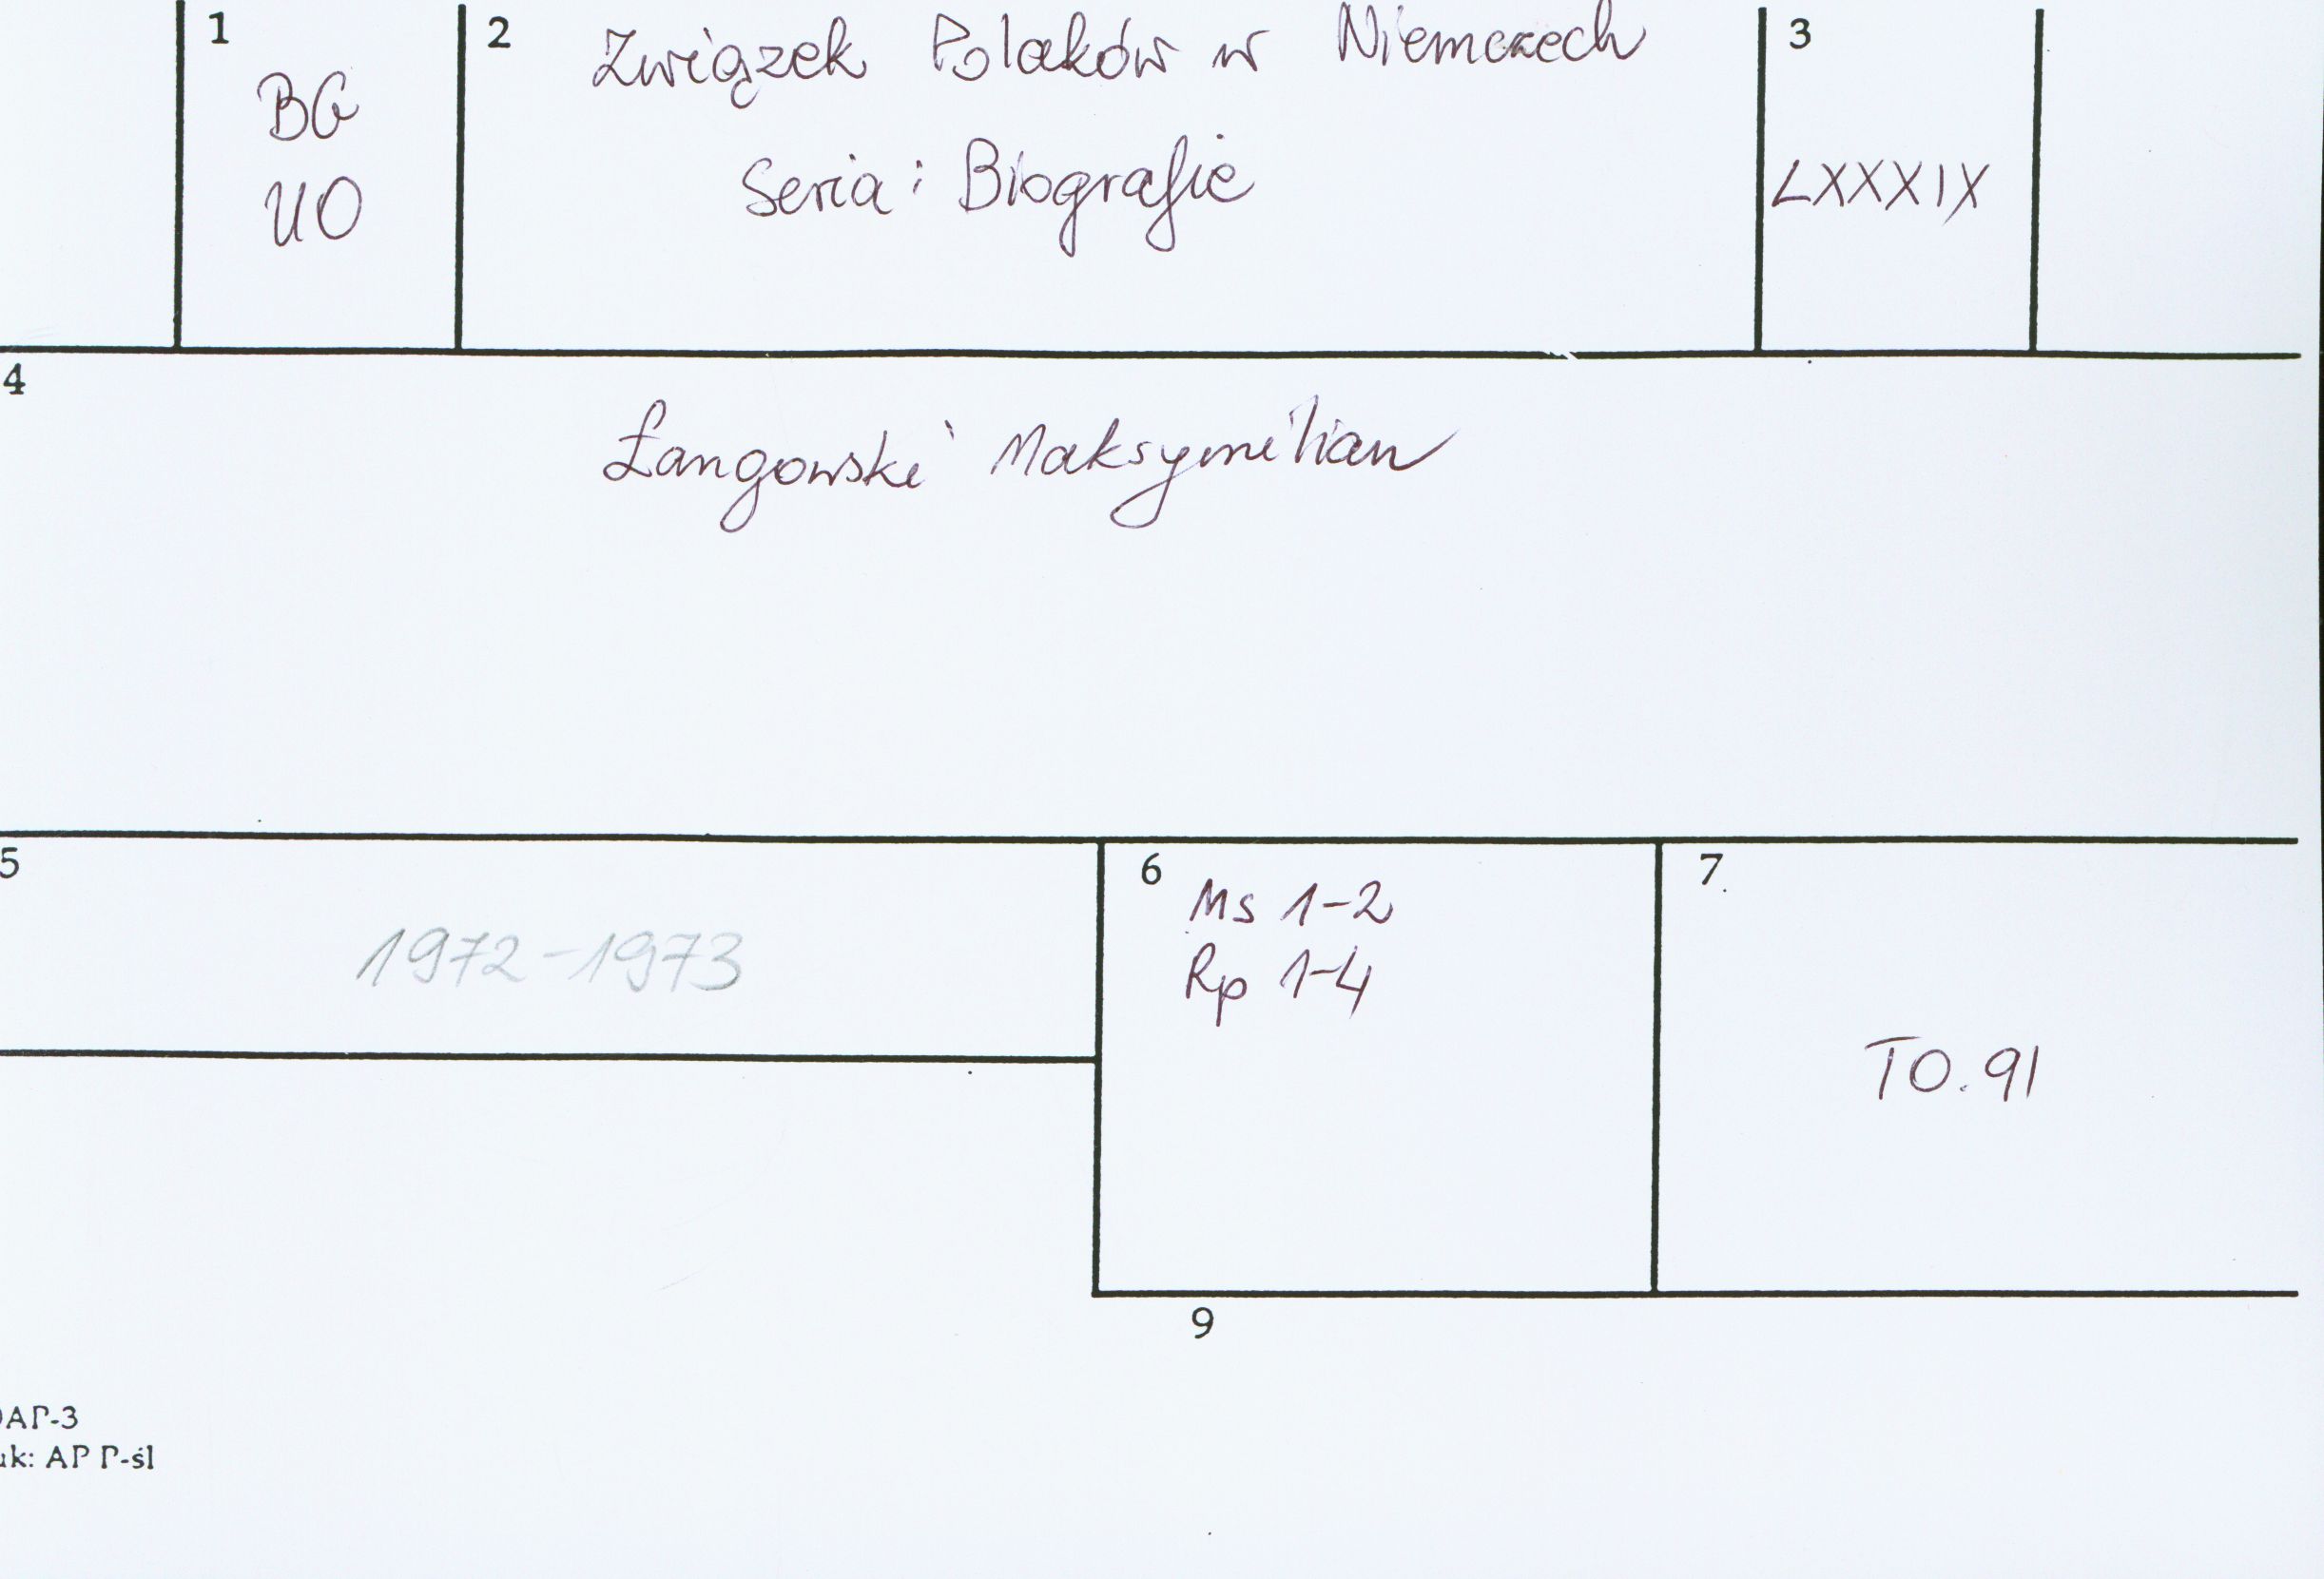 1
BG
UO
2
Związek Polaków w Niemczech
Seria: Biografie
3
LXXXIX
4
Łangowski Maksymilian
5
1972-1973
6
Ms 1-2
Rp 1-4
7
TO.91
9
AP-3
uk: AP P-śl